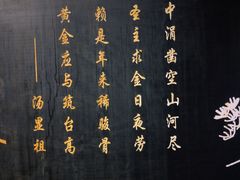 中涓凿空山河尽
圣主求金日夜劳
赖是年来稀骏骨
黄金应与筑台高
——汤显祖